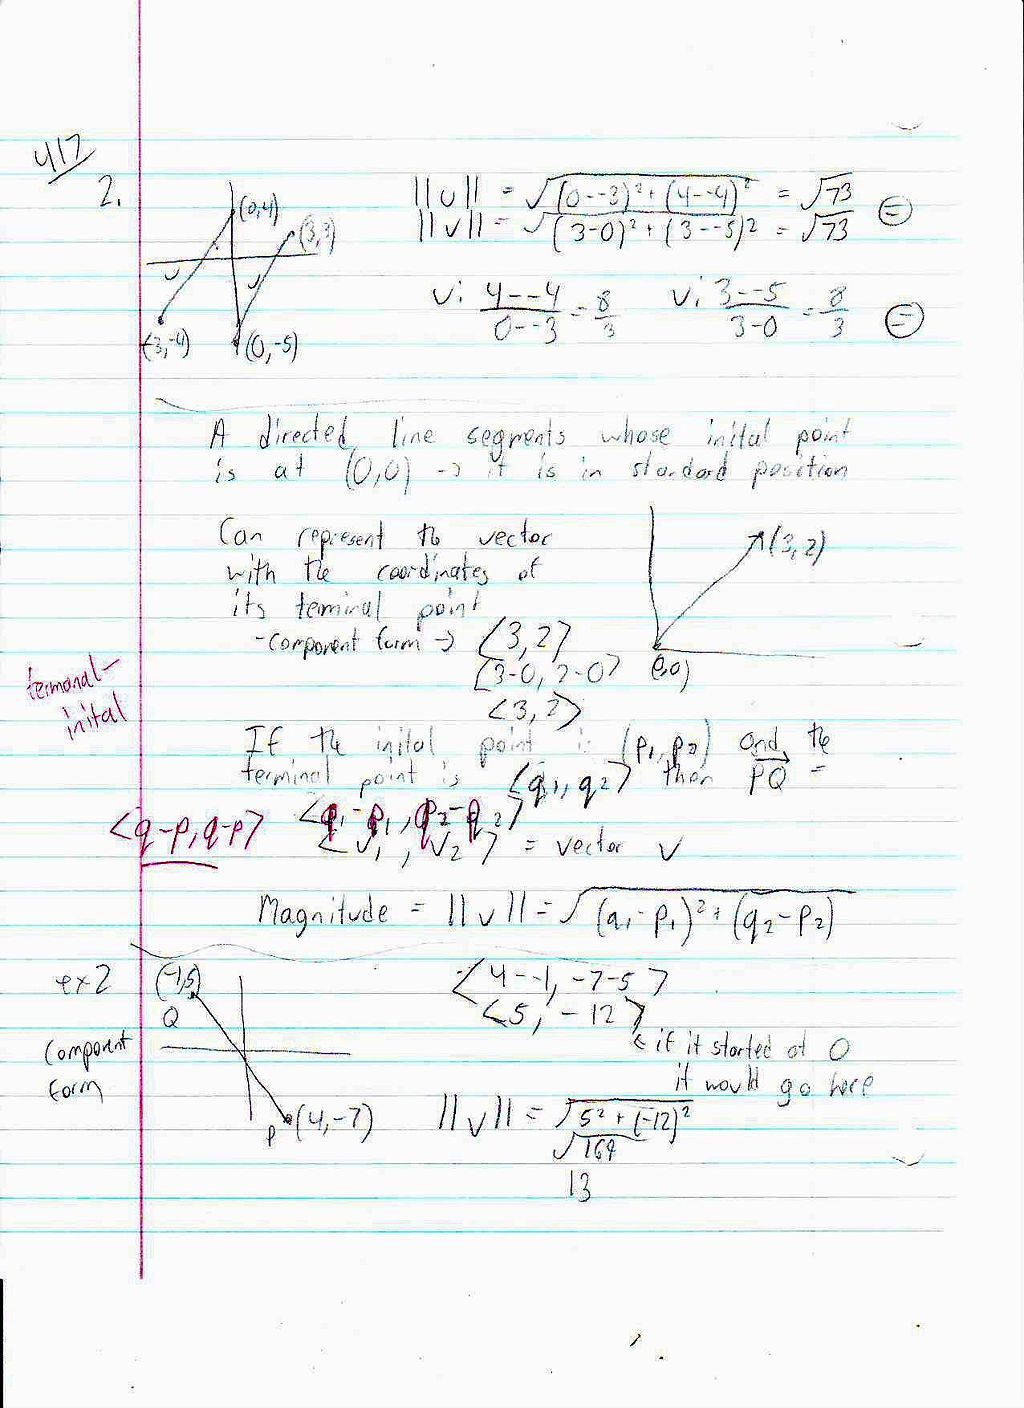 417
2.
(0,4)
(3,3)
(-3,-4)
(0,-5)
||u|| = √(0--3)²+(4--4)² = √73
||v|| = √(3-0)²+(3--5)² = √73 =
u: 4--4/0--3 = 8/3 v: 3--5/3-0 = 8/3 =
A directed line segments whose inital point
is at (0,0) → it is in standard position
Can represent the vector
with the coordinates of
its terminal point
-component form → <3,2>
<3-0, 2-0>
<3,2>
(3,2)
(0,0)
termonal-
inital
If the inital point is (p₁,p₂) and the
terminal point is <q₁,q₂> then PQ =
<q-p,q-p>
<q₁-p₁, q₂-p₂>
<v₁, v₂> = vector v
Magnitude = ||v|| = √(q₁-p₁)²+(q₂-p₂)
ex2
Component
form
(-1,5)
Q
P (4,-7)
<4--1, -7-5>
<5, -12>
← if it started at 0
it would go here
||v|| = √5²+(-12)²
√169
13